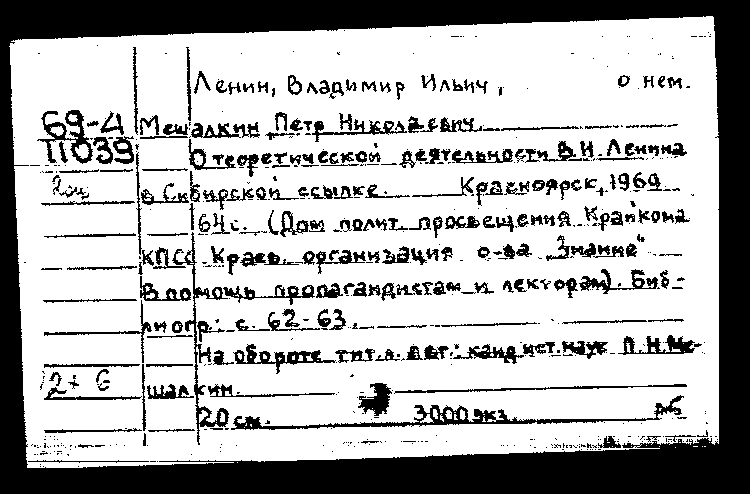 Ленин, Владимир Ильич, о нем.
69-4 Мешалкин, Петр Николаевич.
11039 О теоретической деятельности В.И. Ленина
в Сибирской ссылке. Красноярск, 1969
64 с. (Дом полит. просвещения Крайкома
КПСС Краев. организация о-ва „Знание"
В помощь пропагандистам и лекторам). Биб-
лиогр: с. 62-63.
На обороте тит. л. авт.: канд. ист. наук П.Н. Ме-
2+ 6 шалкин.
20 см. 3000 экз.